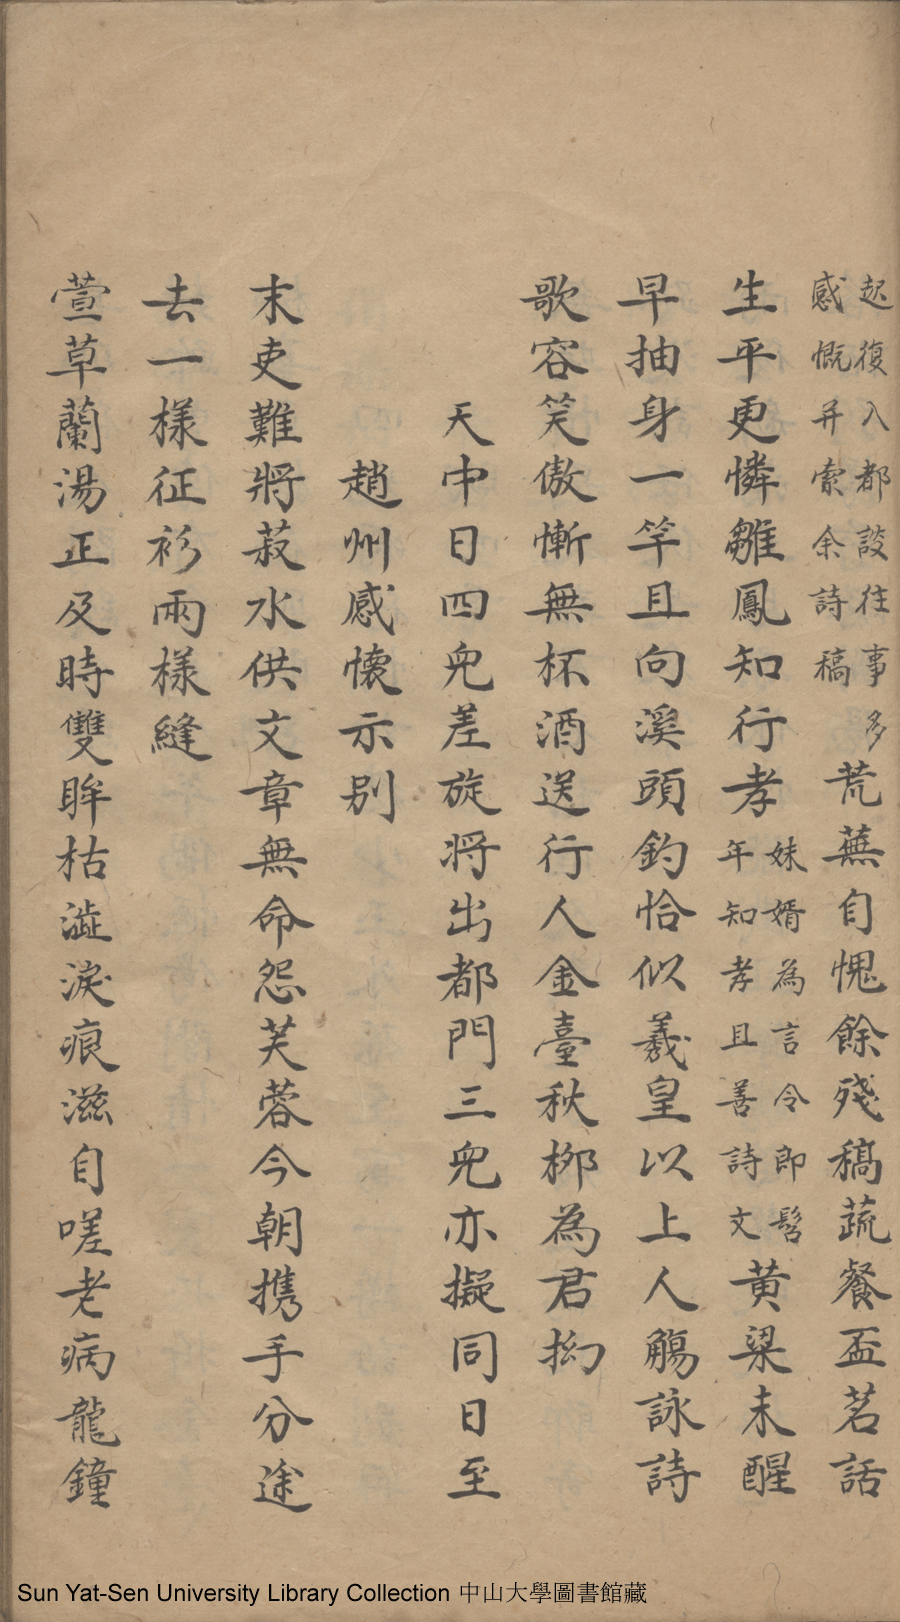 起復入都談往事多
感慨并索余詩稿
荒蕪自愧餘殘稿蔬餐盃茗話
生平更憐雛鳳知行孝
妹婿為言令郎髫
年知孝且善詩文
黄粱未醒
早抽身一竿且向溪頭釣恰似羲皇以上人觴詠詩
歌容笑傲慚無杯酒送行人金臺秋栁為君拗
天中日四兒差旋將出都門三兒亦擬同日至
趙州感懷示别
末吏難將菽水供文章無命怨芙蓉今朝携手分途
去一樣征衫兩樣縫
萱草蘭湯正及時雙眸枯澁淚痕滋自嗟老病龍鐘
Sun Yat-Sen University Library Collection 中山大學圖書館藏